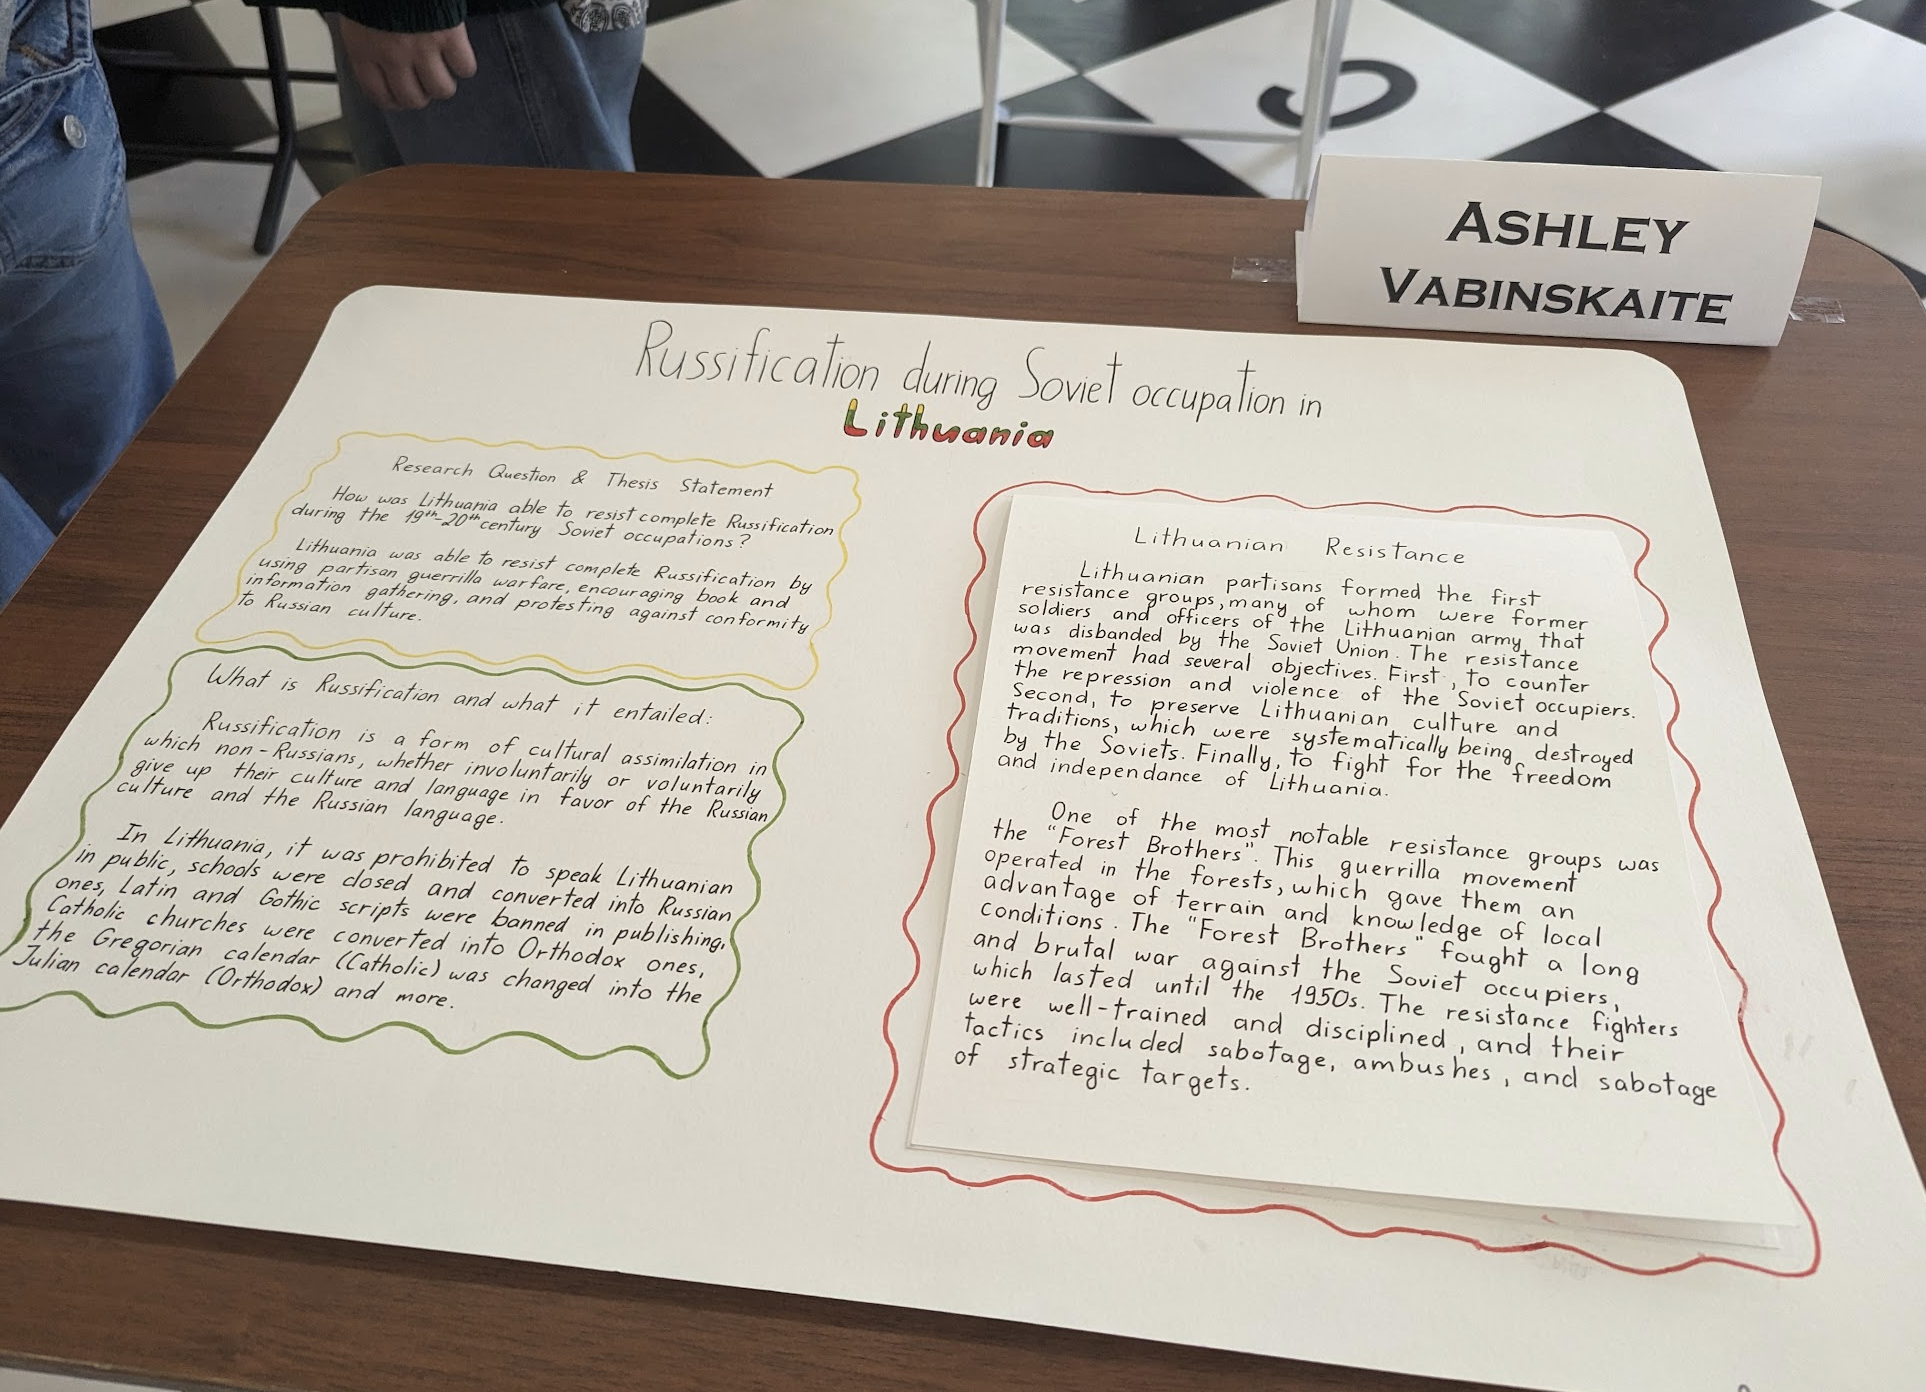 ASHLEY
VABINSKAITE
Russification during Soviet occupation in
Lithuania
Research Question & Thesis Statement
How was Lithuania able to resist complete Russification
during the 19th-20th century Soviet occupations?
Lithuania was able to resist complete Russification by
using partisan guerrilla warfare, encouraging book and
information gathering, and protesting against conformity
to Russian culture.
What is Russification and what it entailed:
Russification is a form of cultural assimilation in
which non-Russians, whether involuntarily or voluntarily
give up their culture and language in favor of the Russian
culture and the Russian language.
In Lithuania, it was prohibited to speak Lithuanian
in public, schools were closed and converted into Russian
ones, Latin and Gothic scripts were banned in publishing,
Catholic churches were converted into Orthodox ones,
the Gregorian calendar (Catholic) was changed into the
Julian calendar (Orthodox) and more.
Lithuanian Resistance
Lithuanian partisans formed the first
resistance groups, many of whom were former
soldiers and officers of the Lithuanian army that
was disbanded by the Soviet Union. The resistance
movement had several objectives. First, to counter
the repression and violence of the Soviet occupiers.
Second, to preserve Lithuanian culture and
traditions, which were systematically being destroyed
by the Soviets. Finally, to fight for the freedom
and independance of Lithuania.
One of the most notable resistance groups was
the "Forest Brothers". This guerrilla movement
operated in the forests, which gave them an
advantage of terrain and knowledge of local
conditions. The "Forest Brothers" fought a long
and brutal war against the Soviet occupiers,
which lasted until the 1950s. The resistance fighters
were well-trained and disciplined, and their
tactics included sabotage, ambushes, and sabotage
of strategic targets.